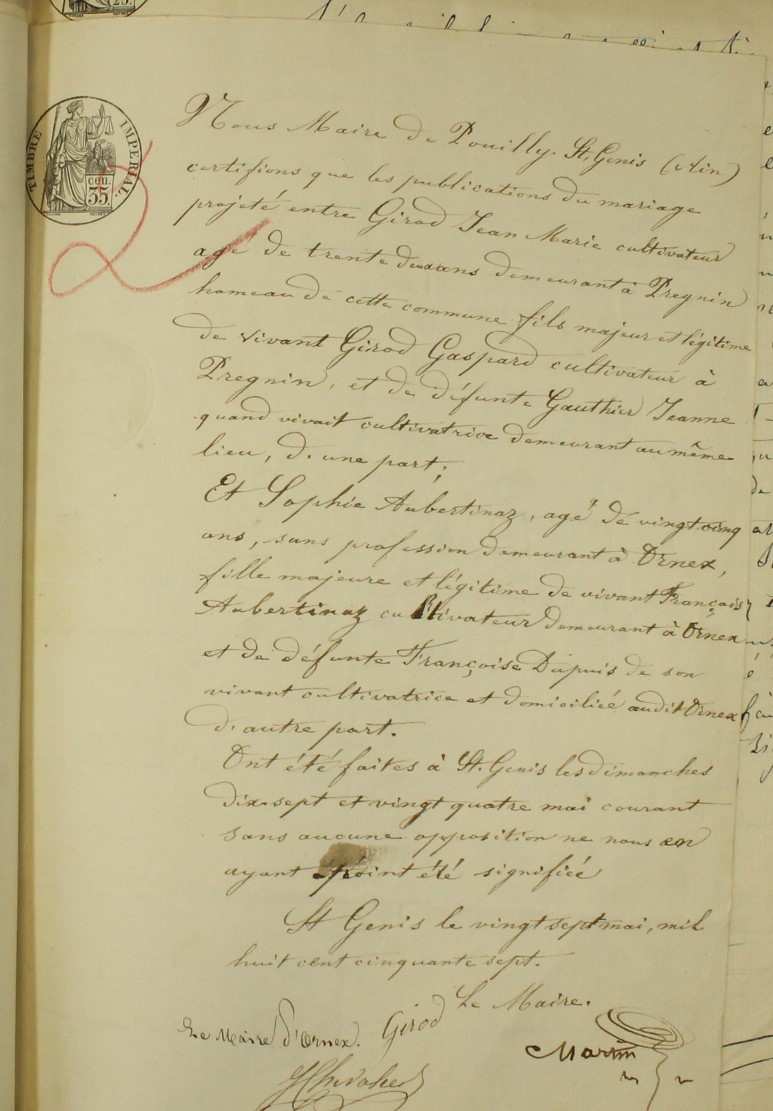 TIMBRE IMPERIAL.
CEN.
35
Nous Maire de Pouilly-St. Genis (Ain)
certifions que les publications du mariage
projeté entre Girod Jean Marie cultivateur
agé de trente deux ans demeurant à Pregnin
hameau de cette commune fils majeur et légitime
de vivant Girod Gaspard cultivateur à
Pregnin, et de défunte Gauthier Jeanne
quand vivait cultivatrice demeurant au même
lieu, d'une part;
Et Sophie Aubertinaz, agé de vingt cinq
ans, sans profession demeurant à Ornex,
fille majeure et légitime de vivant François
Aubertinaz cultivateur demeurant à Ornex
et de défunte Françoise Dupuis de son
vivant cultivatrice et domiciliée audit Ornex
d'autre part.
Ont été faites à St. Genis les dimanches
dix-sept et vingt quatre mai courant
sans aucune opposition ne nous en
ayant point été signifiée
St Genis le vingt sept mai, mil
huit cent cinquante sept.
Le Maire.
Le Maire d'Ornex. Girod
Martin